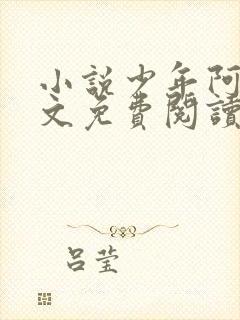 小說少年阿
文免費閱讀
呂莹